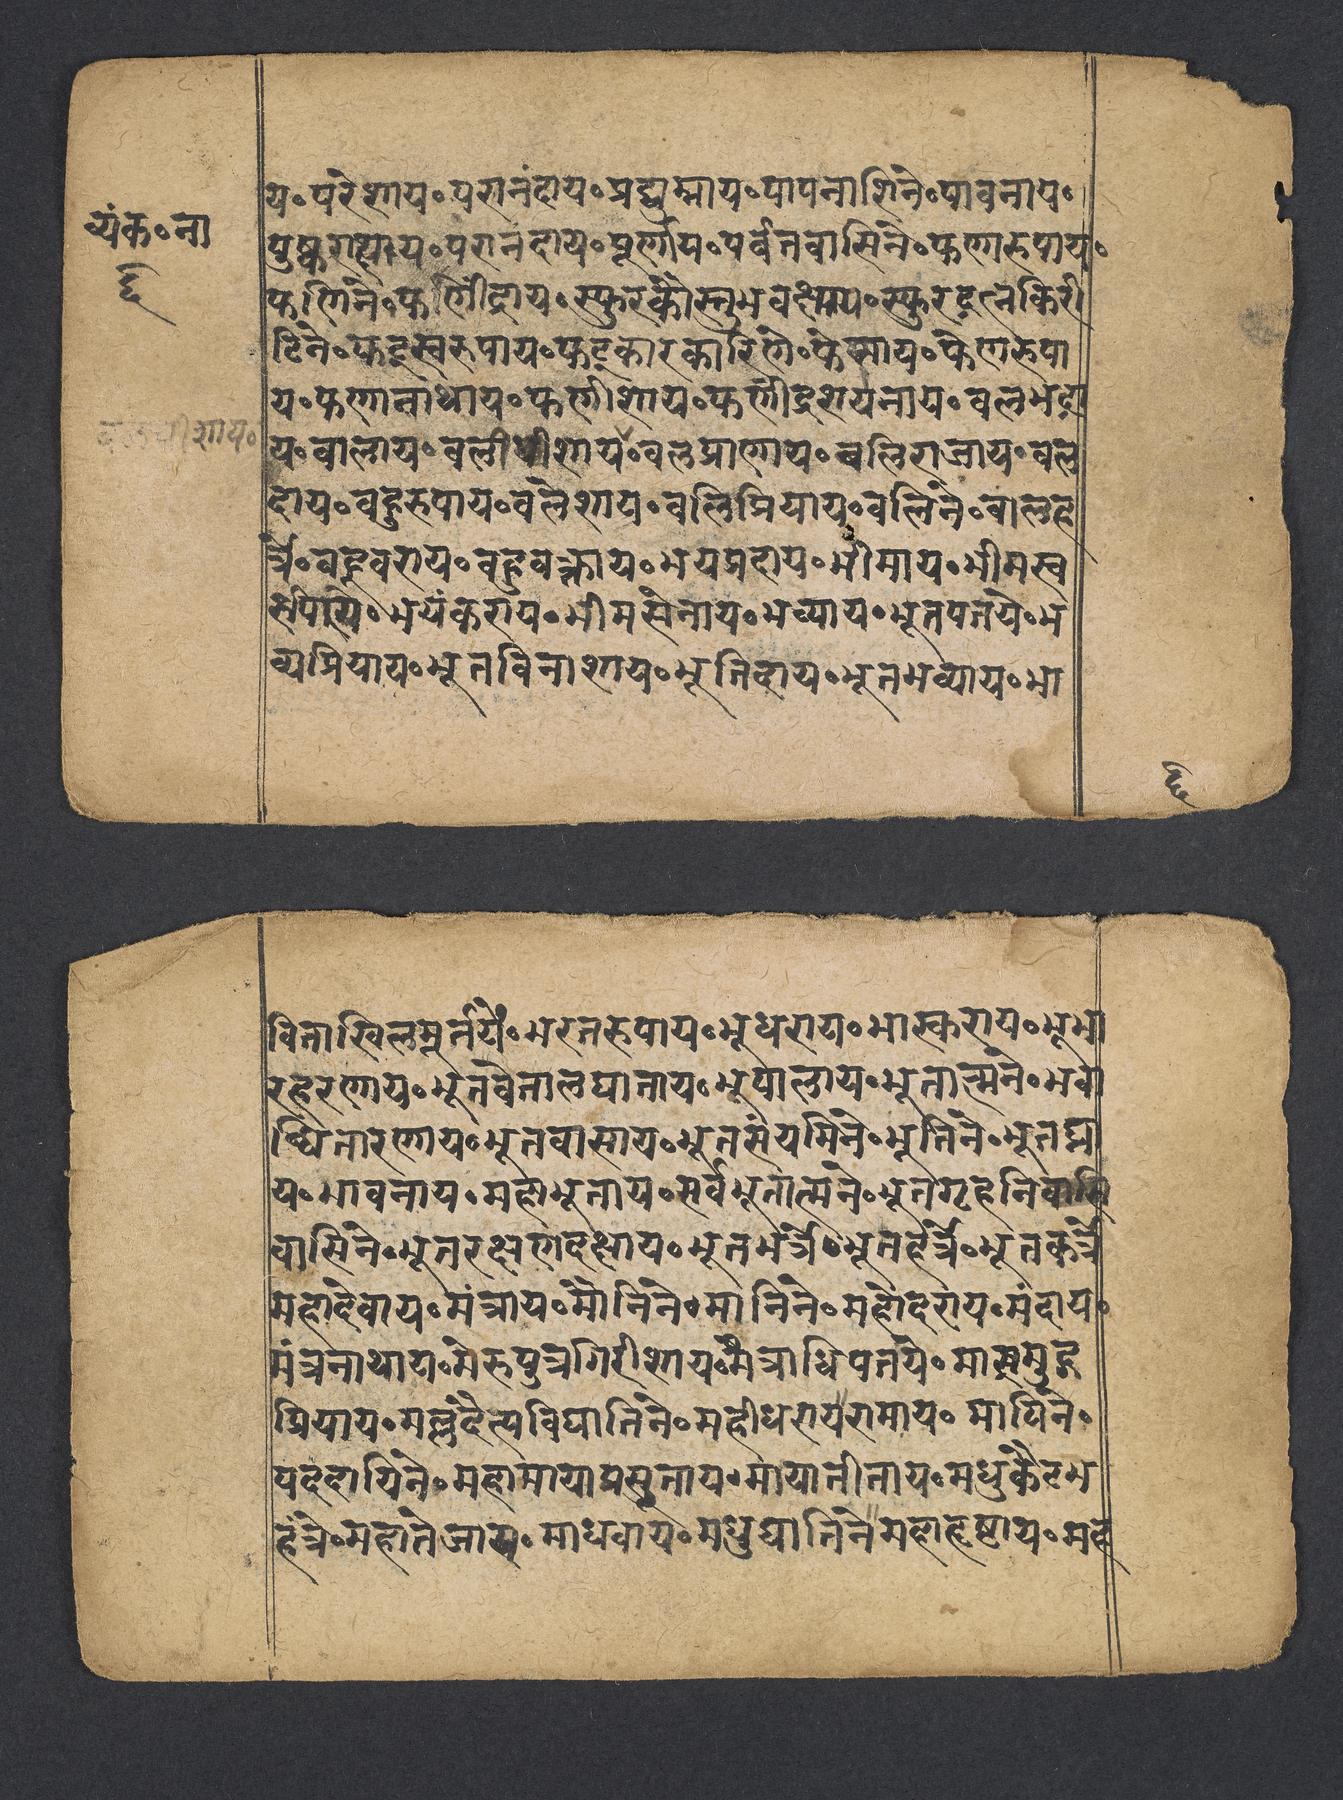 य॰परेशाय॰परानंदाय॰प्रद्युम्नाय॰पापनाशिने॰पावनाय॰
व्यंक॰ना
६
पुष्कराक्षाय॰परानंदाय॰पूर्णाय॰पर्वतवासिने॰फणारूपाय॰
फणिने॰फणींद्राय॰स्फुरत्कौस्तुभवक्षसाय॰स्फुरद्रत्नकिरी
टिने॰फट्स्वरूपाय॰फट्कारकारिणे॰फेणरूपा
य॰फणानाथाय॰फणीशाय॰फणींद्रशयनाय॰बलभद्रा
य॰बालाय॰बलीधीशाय॰बलप्राणाय॰बलिराजाय॰बल
दाय॰बहुरूपाय॰बलेशाय॰बलिप्रियाय॰बलिने॰बालह
र्त्रे॰बहुवराय॰बहुवक्त्राय॰भयप्रदाय॰भीमाय॰भीमस्व
रूपिणे॰भयंकराय॰भीमसेनाय॰भव्याय॰भूतपतये॰भ
व्यप्रियाय॰भूतविनाशाय॰भूतिदाय॰भूतभव्याय॰भा
६
विताखिलमूर्तये॰भरतरूपाय॰भूधराय॰भास्कराय॰भूभा
रहरणाय॰भूतवेतालघाताय॰भूपालाय॰भूतात्मने॰भवा
ब्धितारणाय॰भूतवासाय॰भूतसंयमिने॰भूतिने॰भूतघ्ना
य॰भावनाय॰महाभूताय॰सर्वभूतात्मने॰भूतगृहनिवासि
वासिने॰भूतरक्षणदक्षाय॰भूतभर्त्रे॰भूतहर्त्रे॰भूतकर्त्रे
महादेवाय॰मंत्राय॰मौनिने॰मानिने॰महोदराय॰मंदाय॰
मंत्रनाथाय॰मेरुपुत्रगिरीशाय॰मंत्राधिपतये॰
प्रियाय॰मल्लदैत्यविघातिने॰महीधरायरामाय॰मायिने॰
पददायिने॰महामायाप्रसूताय॰मायातीताय॰मधुकैटभ
हंत्रे॰महातेजाय॰माधवाय॰मधुघातिने महाहृष्टाय॰मह